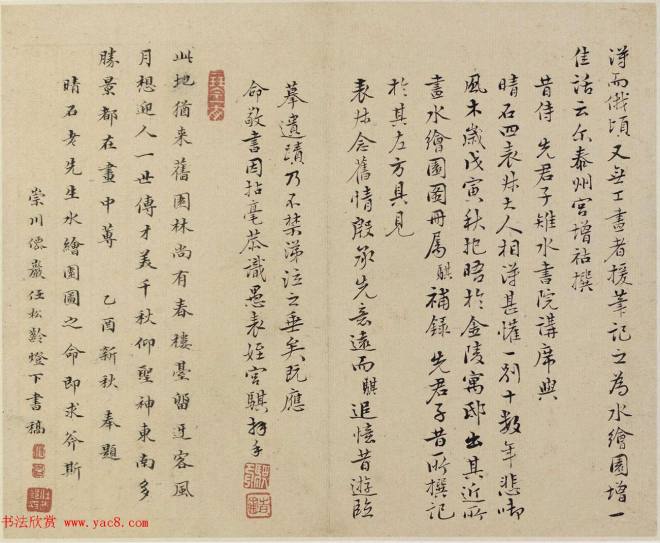 得而俄頃又無工畫者援筆記之為水繪園增一
佳話云尔泰州宮增祜撰
昔侍先君子雉水書院講席與
晴石四表叔大人相得甚懽一別十數年悲啣
風木歲戊寅秋把晤於金陵寓邸出其近所
畫水繪園圖冊属騏補錄先君子昔所撰記
於其左方具見
表叔念舊情殷承先意遠而騏追憶昔遊臨
摹遺蹟乃不禁涕泣之垂矣既應
命敬書因拈毫恭識愚表姪宮騏拜手
此地猶来舊園林尚有春樓臺留過客風
月想迎人一世傳才美千秋仰聖神東南多
勝景都在畫中尊 乙酉新秋 奉題
晴石老先生水繪園圖之命即求斧斯
崇川 任松齡燈下書稿
书法欣赏 www.yac8.com